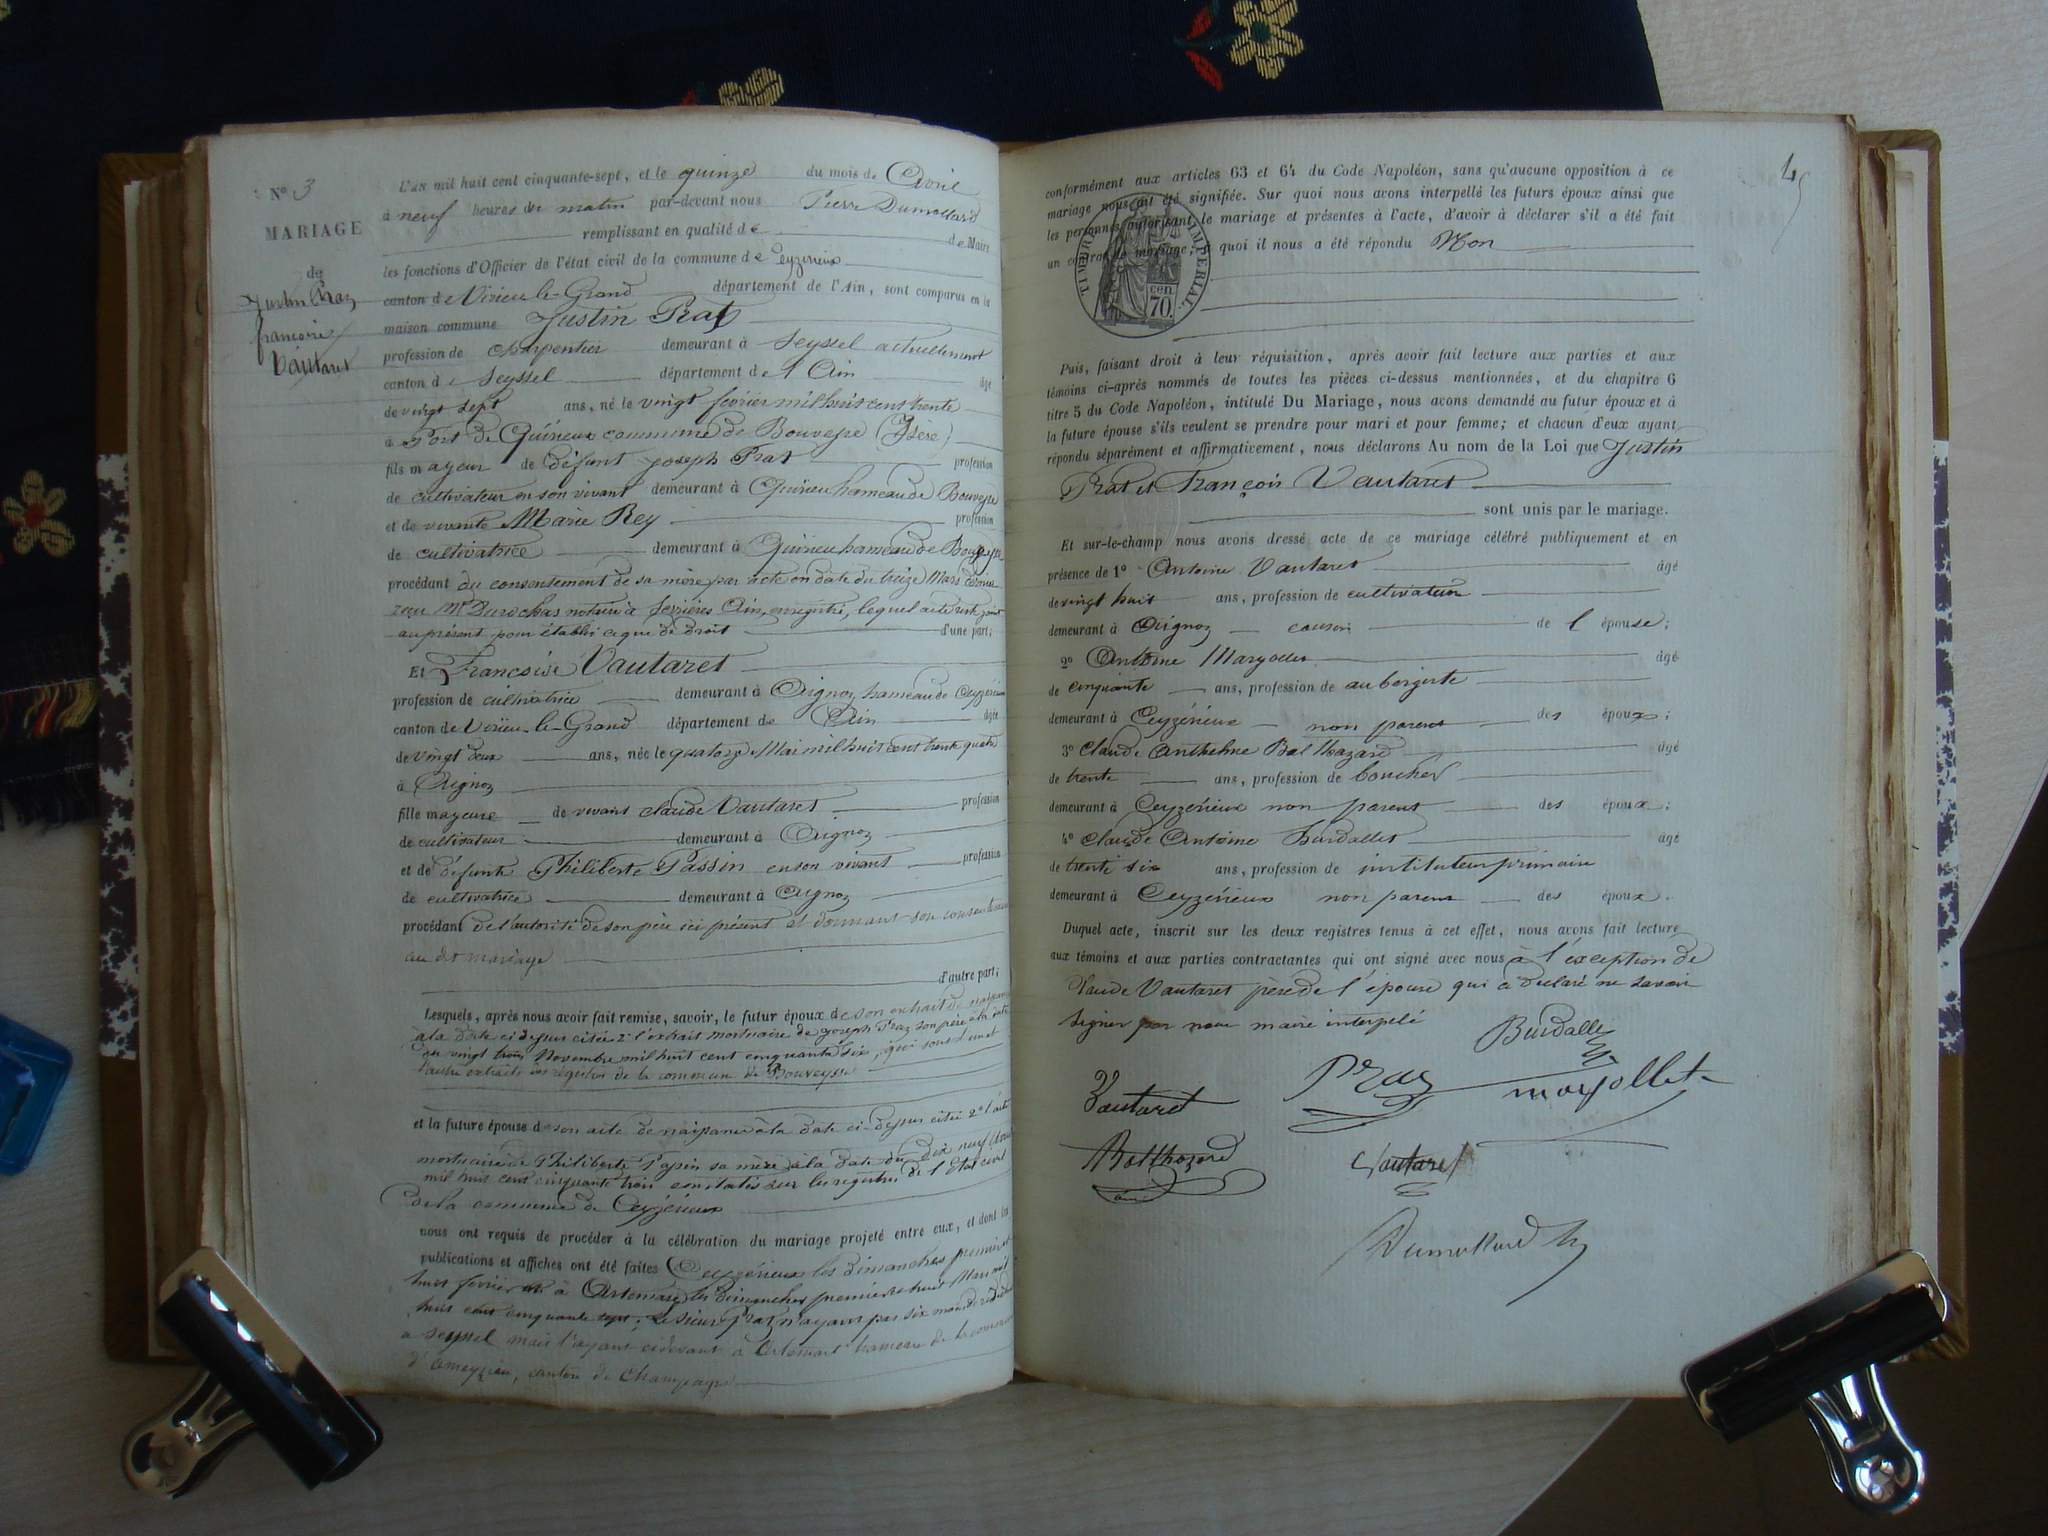 Nº 3
MARIAGE
de
Justin Praz
françoise
Vautaret
L'an mil huit cent cinquante-sept, et le quinze du mois de Avril
à neuf heures du matin par-devant nous Pierre Dumollard
remplissant en qualité de de Maire
les fonctions d'Officier de l'état civil de la commune de Ceyzerieux
canton de Virieu-le-Grand département de l'Ain, sont comparus en la
maison commune Justin Praz
profession de charpentier demeurant à Seyssel actuellement
canton de Seyssel département de l'Ain âgé
de vingt sept ans, né le vingt fevrier mil huit cent trente
à Port de Quirieux commune de Bouvesse (Isère)
fils mayeur de défunt joseph Prat profession
de cultivateur en son vivant demeurant à Quirieu hameau de Bouvesse
et de vivante Marie Rey profession
de cultivatrice demeurant à Quirieu hameau de Bouvesse
procédant du consentement de sa mère par acte en date du treize Mars dernier
reçu Mr notaire à Serrières Ain, enregistré, lequel acte reste joint
au présent pour établir ce que de droit d'une part;
Et Francoise Vautaret
profession de cultivatrice demeurant à Aignoz hameau de Ceyzérieux
canton de Virieu-le-Grand département de Ain âgée
de vingt deux ans, née le quatorze Mai mil huit cent trente quatre
à Aignoz
fille mayeure de vivant claude Vautaret profession
de cultivateur demeurant à Aignoz
et de défunte Philiberte Passin en son vivant profession
de cultivatrice demeurant à Aignoz
procédant de l'autorité de son père ici présent et donnant son consentement
au dit mariage
d'autre part;
Lesquels, après nous avoir fait remise, savoir, le futur époux de son extrait de naissance
à la date ci dessus citée 2º l'extrait mortuaire de joseph Praz son père à la date
du vingt trois Novembre mil huit cent cinquante six, qui sont l'un et
l'autre extraits des registres de la commune de Bouveysse
et la future épouse de son acte de naissance à la date ci-dessus citée 2º l'acte
mortuaire de Philiberte Passin sa mère à la date du dix neuf
mil huit cent cinquante trois constatés sur les registres de l'Etat civil
de la commune de Ceyzérieux
nous ont requis de procéder à la célébration du mariage projeté entre eux, et dont les
publications et affiches ont été faites Ceyzérieux les dimanches premier et
huit fevrier à Artemare les Dimanches premier et huit Mars mil
huit cent cinquante sept, Le sieur Praz n'ayant pas six mois de résidence
a Seyssel mais l'ayant cidevant à Artemart hameau de la commune
d'Ameyzieu, canton de Champagne
4
conformément aux articles 63 et 64 du Code Napoléon, sans qu'aucune opposition à ce
mariage nous ait été signifiée. Sur quoi nous avons interpellé les futurs époux ainsi que
les personnes autorisant le mariage et présentes à l'acte, d'avoir à déclarer s'il a été fait
un contrat de mariage; à quoi il nous a été répondu Non
TIMBRE IMPERIAL
cen
70.
Puis, faisant droit à leur réquisition, après avoir fait lecture aux parties et aux
témoins ci-après nommés de toutes les pièces ci-dessus mentionnées, et du chapitre 6
titre 5 du Code Napoléon, intitulé Du Mariage, nous avons demandé au futur époux et à
la future épouse s'ils veulent se prendre pour mari et pour femme; et chacun d'eux ayant
répondu séparément et affirmativement, nous déclarons Au nom de la Loi que Justin
Prat et Françoise Vautaret
sont unis par le mariage.
Et sur-le-champ nous avons dressé acte de ce mariage célébré publiquement et en
présence de 1º Antoine Vautaret âgé
de vingt huit ans, profession de cultivateur
demeurant à Aignoz cousin de l'épouse;
2º Antoine Mayollet âgé
de cinquante ans, profession de aubergiste
demeurant à Ceyzérieux non parent des époux;
3º Claude Anthelme Balthazard âgé
de trente ans, profession de boucher
demeurant à Ceyzérieux non parent des époux;
4º Claude Antoine Burdallet âgé
de trente six ans, profession de instituteur primaire
demeurant à Ceyzérieux non parent des époux.
Duquel acte, inscrit sur les deux registres tenus à cet effet, nous avons fait lecture
aux témoins et aux parties contractantes qui ont signé avec nous à l'exception de
Claude Vautaret père de l'épouse qui a déclaré ne savoir
signer par nous maire interpelé
Burdallet
Vautaret Praz mayollet
Balthazard Vautaret
Dumollard